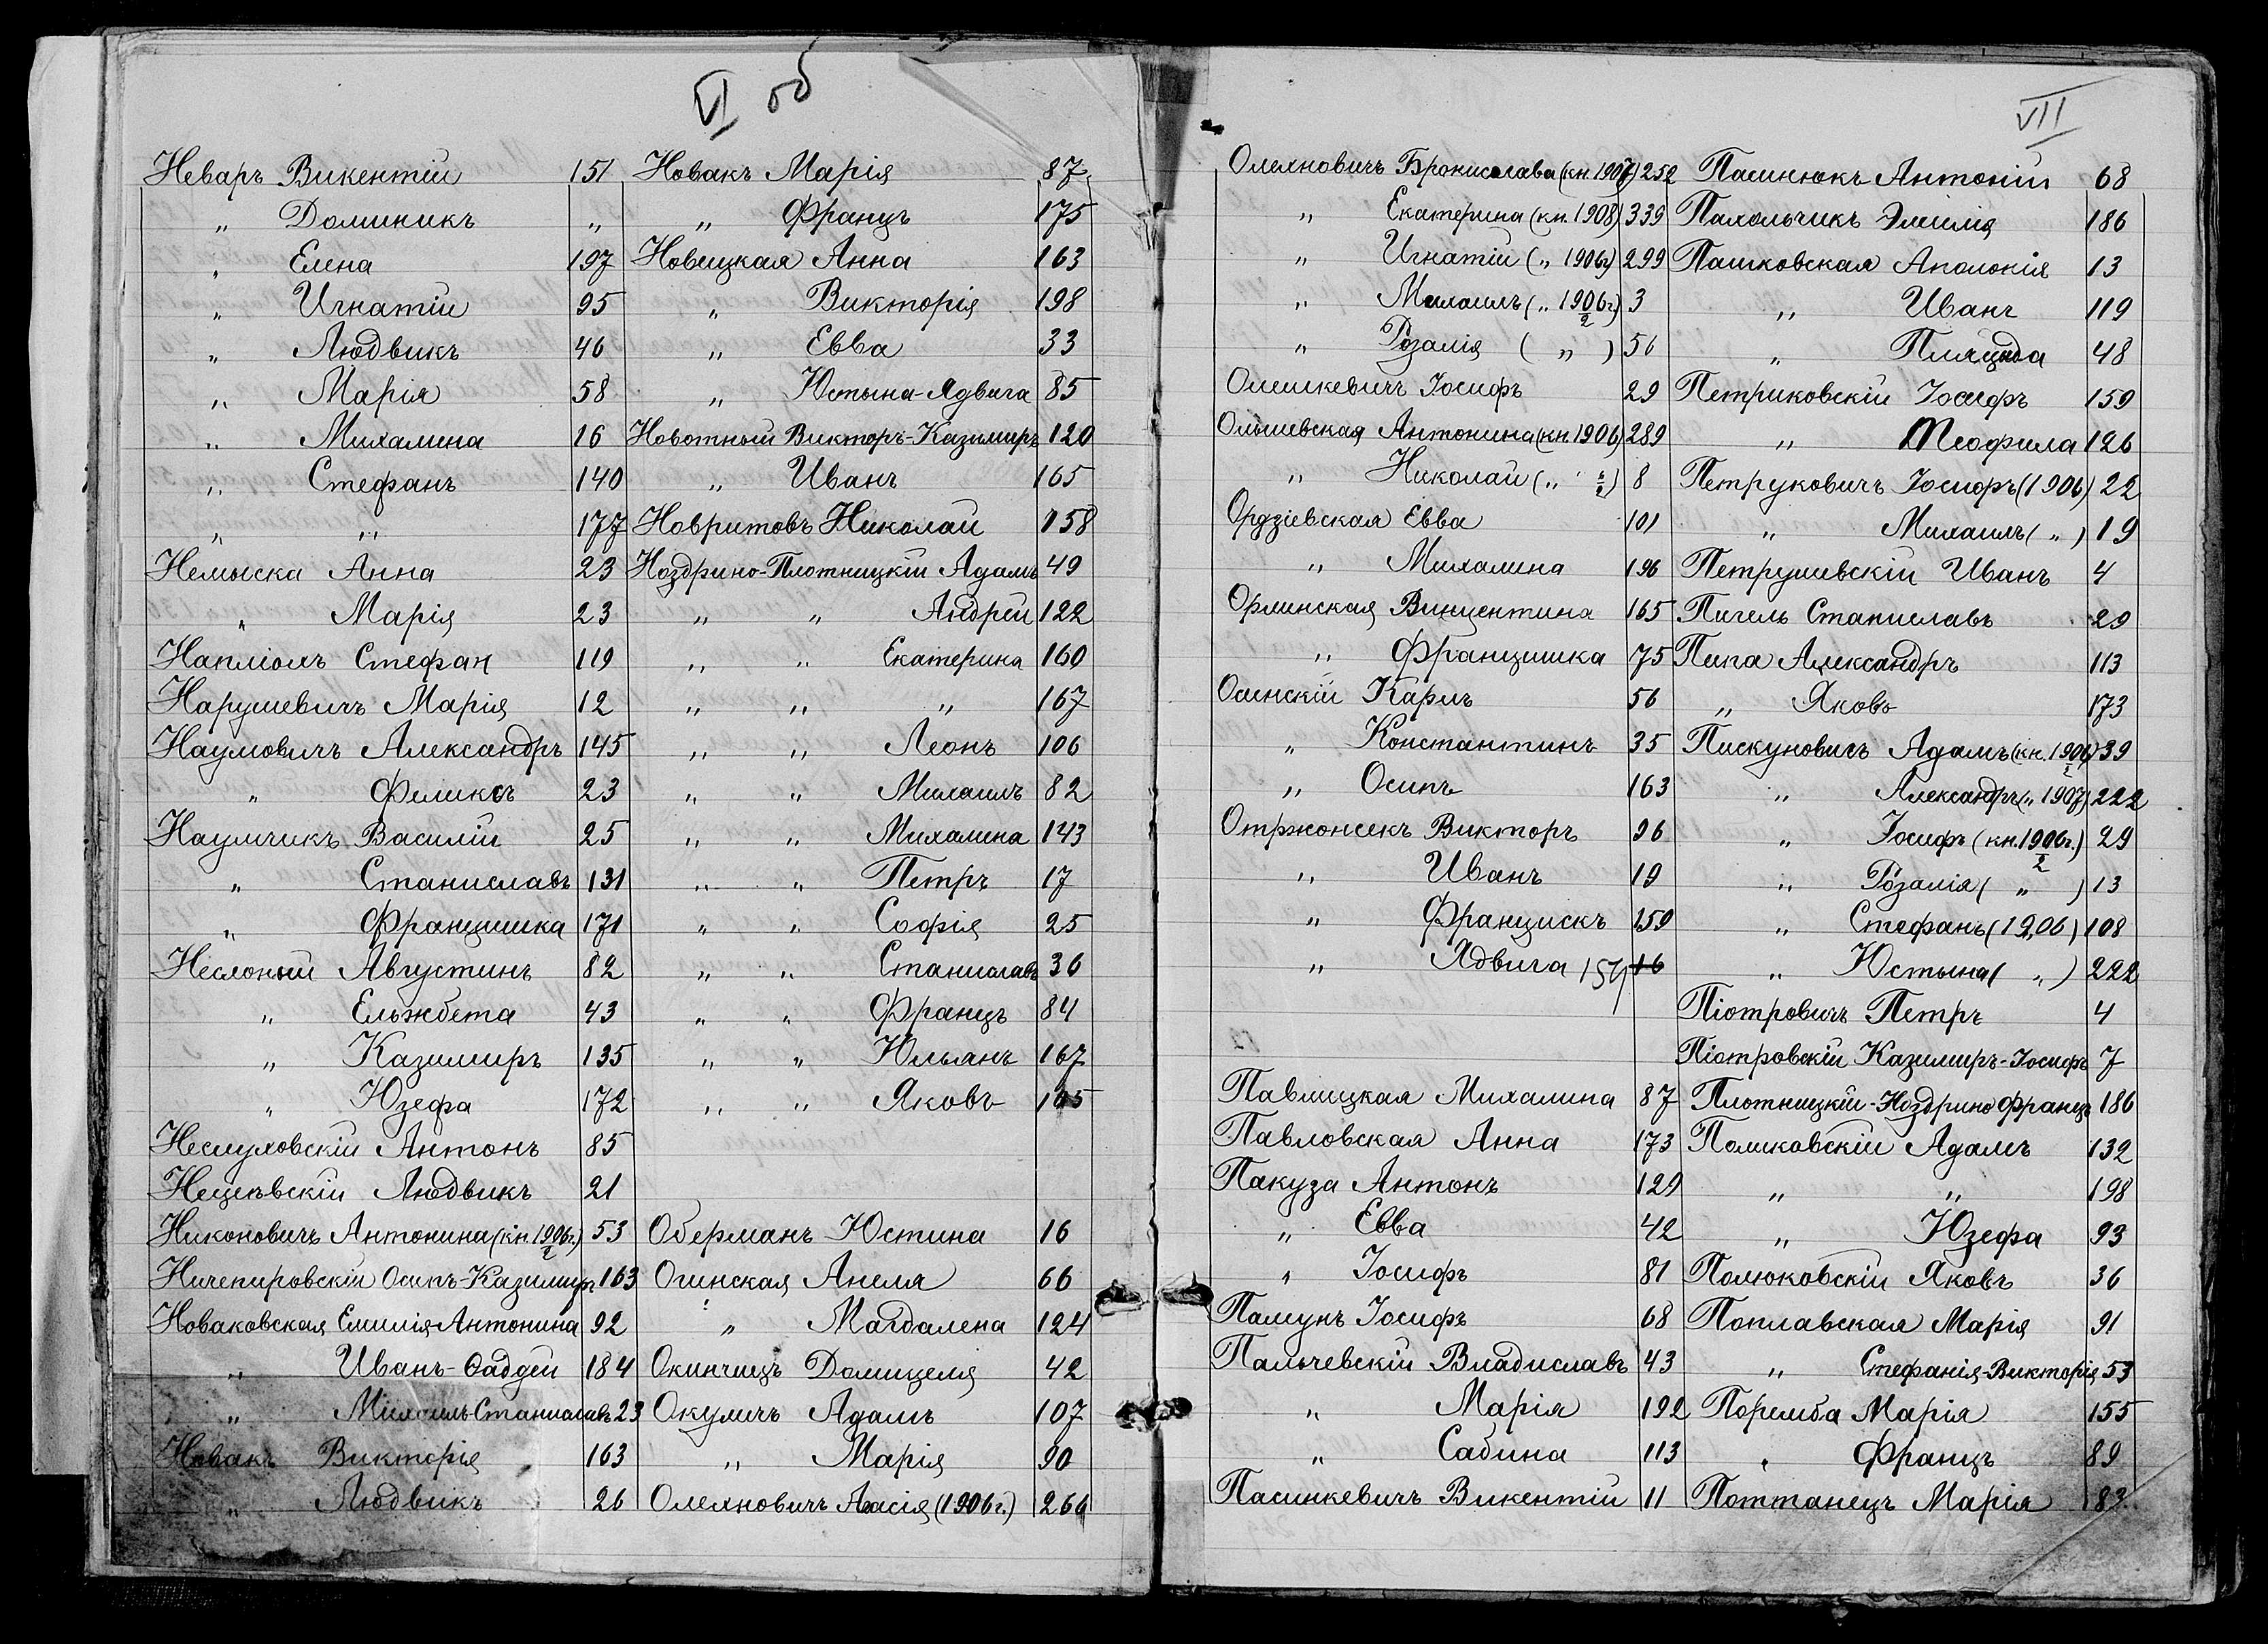 VI об
Неваръ Викентій 151
„ Доминикъ „
„ Елена 197
„ Игнатій 95
„ Людвикъ 46
„ Марія 58
„ Михалина 16
„ Стефанъ 140
„ „ 177
Немыска Анна 23
„ Марія 23
Напліомъ Стефан 119
Нарушевичъ Марія 12
Наумовичъ Александръ 145
„ Феликсъ 23
Наумчикъ Василій 25
„ Станиславъ 131
„ Францишка 171
Неслоный Августинъ 82
„ Ельжбета 43
„ Казимиръ 135
„ Юзефа 172
Неслуховскій Антонъ 85
Нецевскій Людвикъ 21
Никоновичъ Антонина (кн. 1906г.) 2 53
Ничепировскій Осипъ-Казимиръ 163
Новаковская Емилія Антонина 92
„ Иванъ-Ѳаддей 184
„ Михаилъ Станиславъ 23
Новакъ Викторія 163
„ Людвикъ 26
Новакъ Марія 87
„ Францъ 175
Новицкая Анна 163
„ Викторія 198
„ Евва 33
„ Юстына-Ядвига 85
Новотный Викторъ-Казимиръ 120
„ Иванъ 165
Новритовъ Николай 158
Ноздрино-Плотницкій Адамъ 49
„ „ Андрей 122
„ „ Екатерина 160
„ „ „ 167
„ „ Леонъ 106
„ „ Михаилъ 82
„ „ Михалина 143
„ „ Петръ 17
„ „ Софія 25
„ „ Станиславъ 36
„ „ Францъ 84
„ „ Юльянъ 167
„ „ Яковъ 165
Оберманъ Юстина 16
Огинская Анеля 66
„ Магдалена 124
Окинчицъ Домицеля 42
Окуличъ Адамъ 107
„ Марія 90
Олехновичъ Анасія (1906г.) 266
VII
Олехновичъ Брониславa (кн. 1907) 252
„ Екатерина (кн. 1908) 339
„ Игнатій („ 1906г) 299
„ Михаилъ („ 1906г.) 2 3
„ Розалія ( „ ) 56
Олешкевичъ Іосифъ 29
Ольшевская Антонина (кн. 1906) 289
„ Николай 8
Ордзіевская Евва 101
„ Михалина 196
Орлинская Винцентина 165
„ Францишка 75
Осинскій Карлъ 56
„ Константинъ 35
„ Осипъ 163
Отржонсекъ Викторъ 96
„ Иванъ 19
„ Францискъ 159
„ Ядвига 159 16
Павлицкая Михалина 87
Павловская Анна 173
Пакуза Антонъ 129
„ Евва 42
„ Іосифъ 81
Палунъ Іосифъ 68
Пальчевскій Владиславъ 43
„ Марія 192
„ Сабина 113
Пасинкевичъ Викентій 11
Пасинюкъ Антоній 68
Пахольчикъ Эмилія 186
Пашковская Аполонія 13
„ Иванъ 119
„ Пляцыда 48
Петриковскій Іосифъ 159
„ Теофила 126
Петруковичъ Іосифъ (1906) 22
„ Михаилъ ( „ ) 19
Петрушевскій Иванъ 4
Пигель Станиславъ 29
Пипа Александръ 113
„ Яковъ 173
Пискуновичъ Адамъ (кн. 1906) 2 39
„ Александръ („ 1907) 222
„ Іосифъ (кн. 1906г.) 2 29
„ Розалія ( „ ) 13
„ Стефанъ (1906) 108
„ Юстына ( „ ) 222
Піотровичъ Петръ 4
Піотровскій Казимиръ-Іосифъ 7
Плотницкій-Ноздрино Францъ 186
Полиховскій Адамъ 132
„ „ 198
„ Юзефа 93
Полюховскій Яковъ 36
Поплавская Марія 91
„ Стефанія-Викторія 53
Поремба Марія 155
„ Францъ 89
Поттанецъ Марія 83